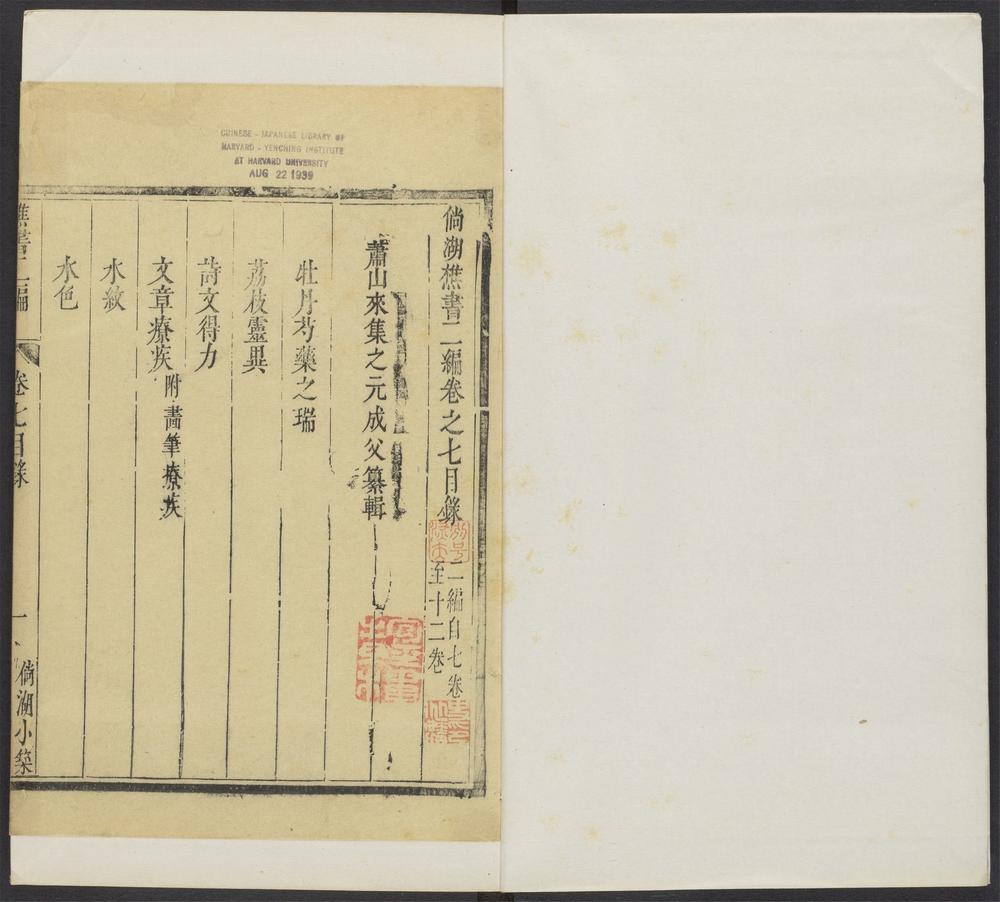 CHINESE - JAPANESE LIBRARY OF
HARVARD - YENCHING INSTITUTE
AT HARVARD UNIVERSITY
AUG 22 1939
倘湖樵書二編卷之七目錄
二編自七卷
至十二卷
蕭山來集之元成父纂輯
牡丹芍藥之瑞
荔枝靈異
詩文得力
文章療疾附畵筆療疾
水紋
水色
樵書二編 卷七目錄 一 倘湖小築